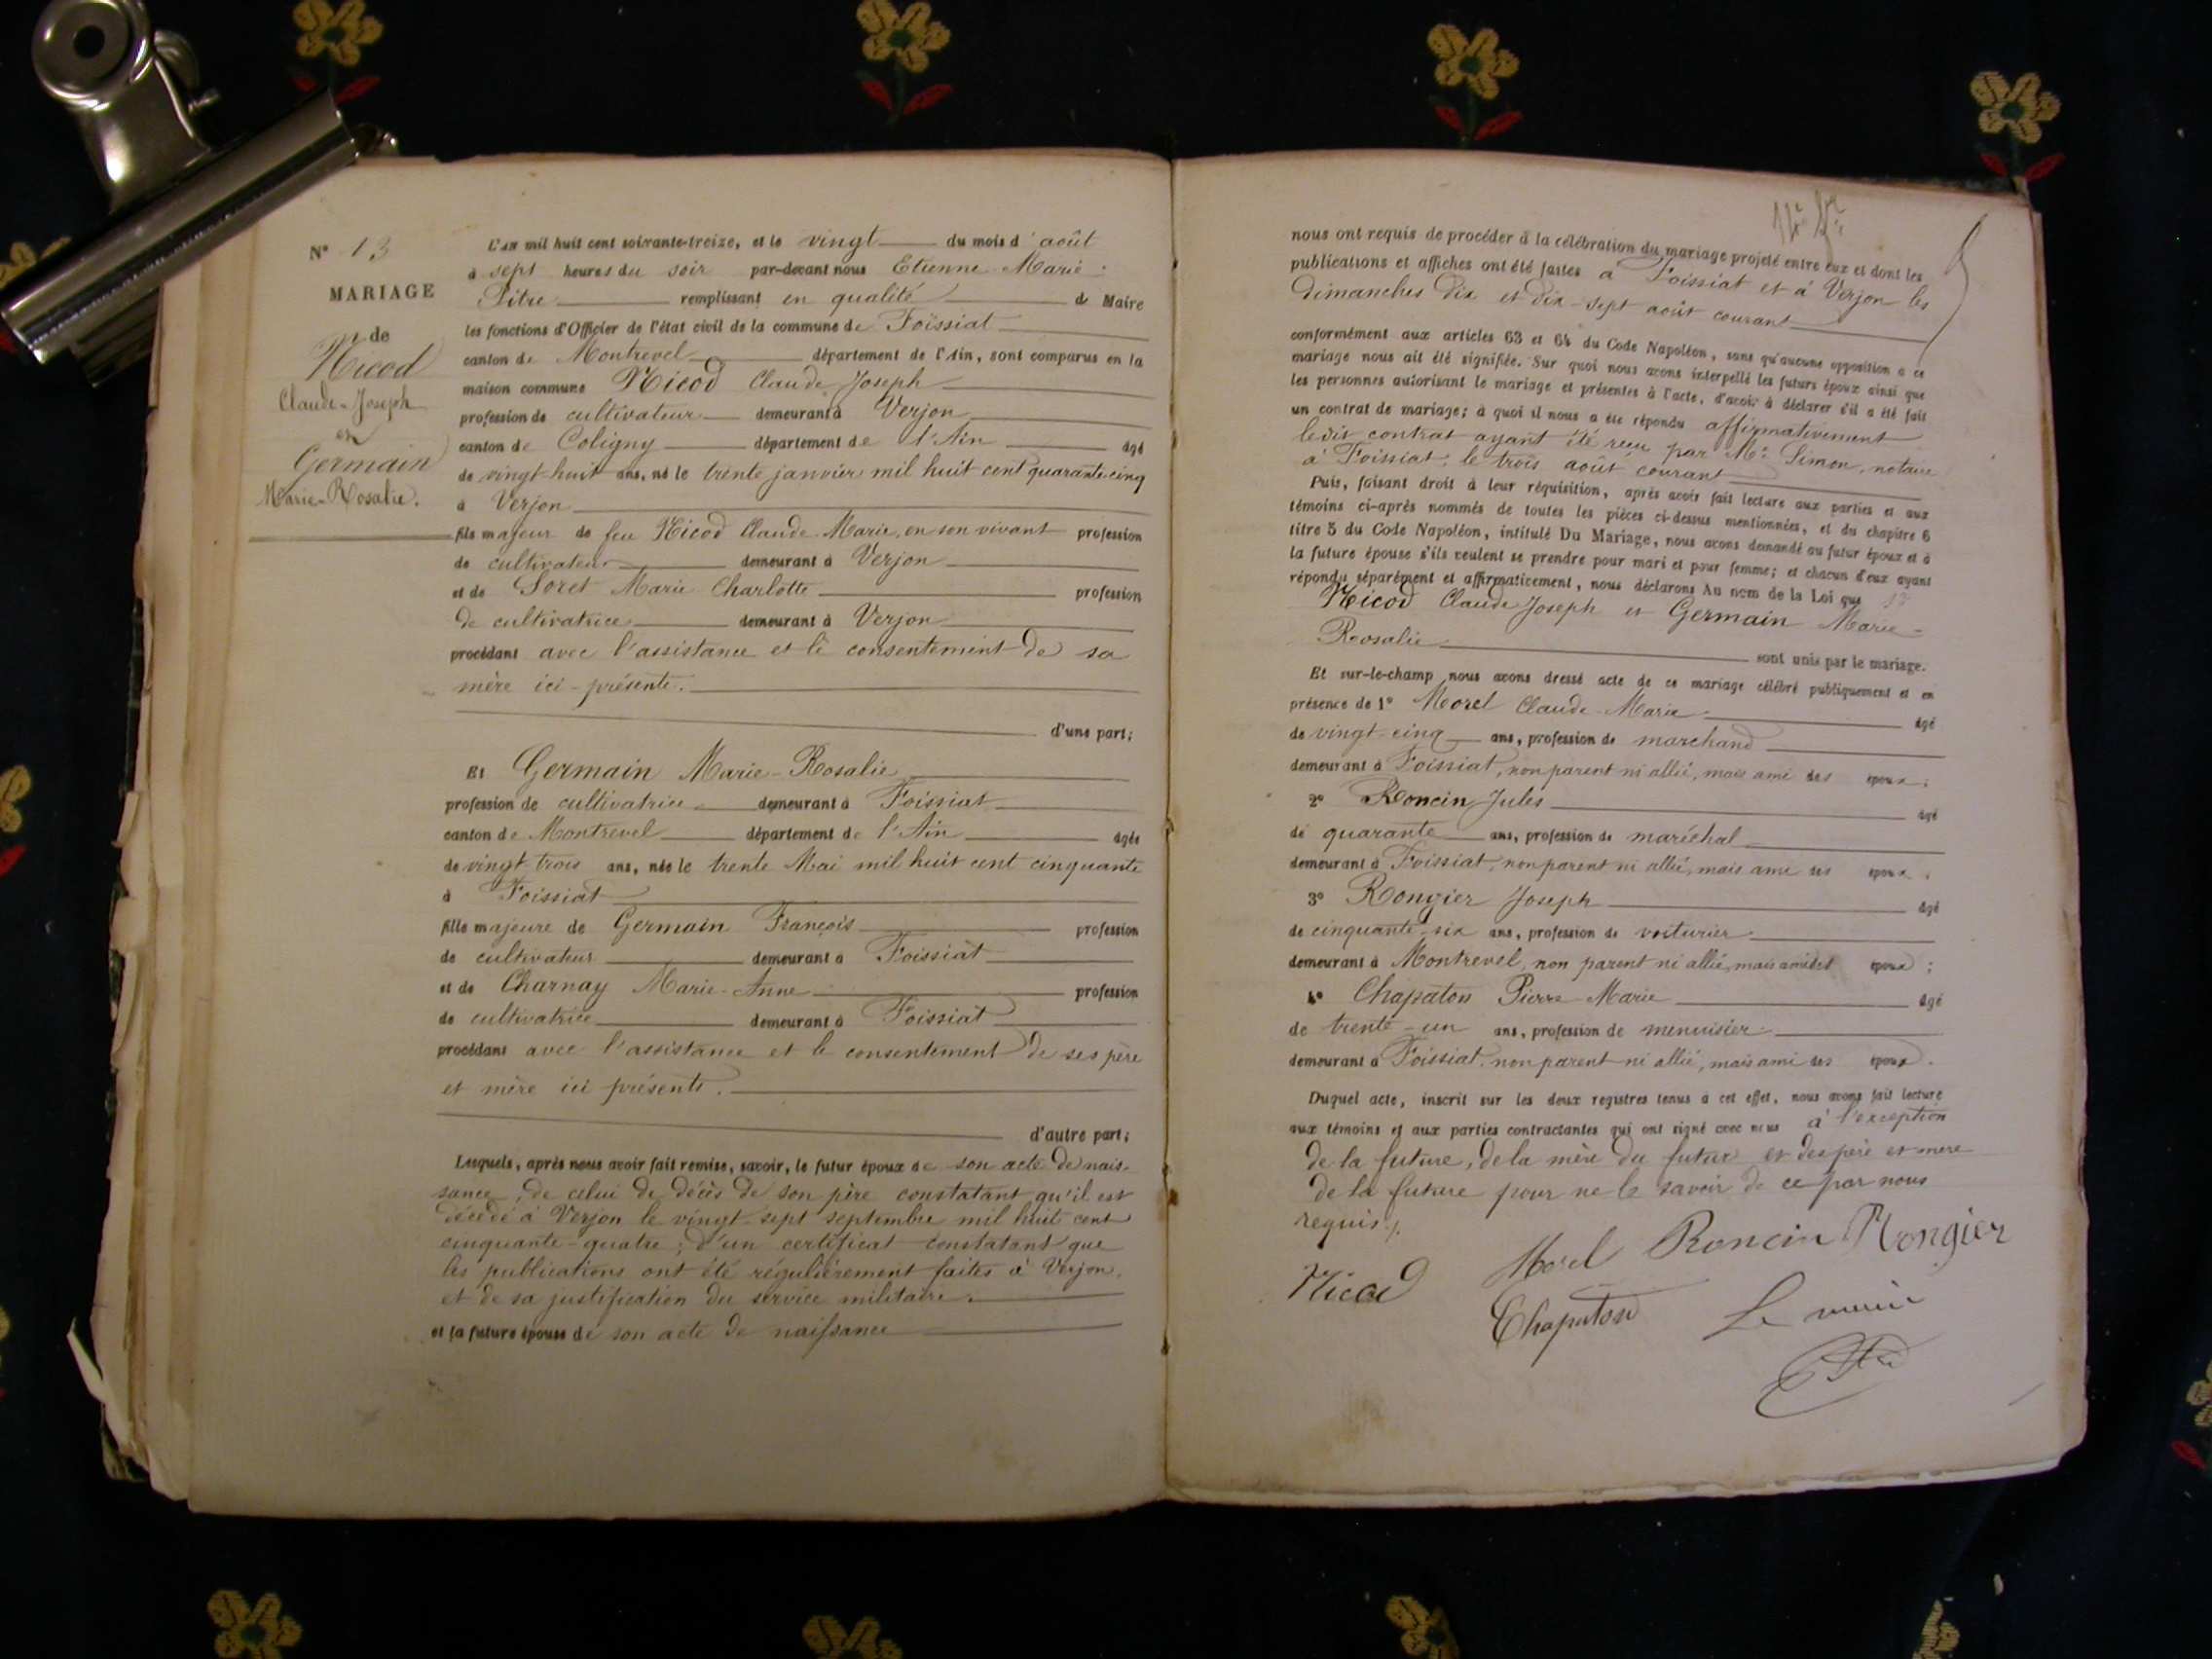 N° 13
MARIAGE
de
Nicod
Claude-Joseph
et
Germain
Marie-Rosalie.
L'an mil huit cent soixante-treize, et le vingt du mois d'août
à sept heures du soir par-devant nous Etienne Marie
Pitre remplissant en qualité de Maire
les fonctions d'Officier de l'état civil de la commune de Foissiat
canton de Montrevel département de l'Ain, sont comparus en la
maison commune Nicod Claude Joseph
profession de cultivateur demeurant à Verjon
canton de Coligny département de l'Ain âgé
de vingt-huit ans, né le trente janvier mil huit cent quarante-cinq
à Verjon
fils majeur de feu Nicod Claude Marie, en son vivant profession
de cultivateur demeurant à Verjon
et de Soret Marie Charlotte profession
de cultivatrice demeurant à Verjon
procédant avec l'assistance et le consentement de sa
mère ici-présente.
d'une part;
Et Germain Marie-Rosalie
profession de cultivatrice demeurant à Foissiat
canton de Montrevel département de l'Ain âgée
de vingt-trois ans, née le trente Mai mil huit cent cinquante
à Foissiat
fille majeure de Germain François profession
de cultivateur demeurant à Foissiat
et de Charnay Marie-Anne profession
de cultivatrice demeurant à Foissiat
procédant avec l'assistance et le consentement de ses père
et mère ici présents.
d'autre part;
Lesquels, après nous avoir fait remise, savoir, le futur époux de son acte de nais-
sance, de celui de décès de son père constatant qu'il est
décédé à Verjon le vingt-sept septembre mil huit cent
cinquante-quatre; d'un certificat constatant que
les publications ont été régulièrement faites à Verjon.
et de sa justification du service militaire.
et la future épouse de son acte de naissance
nous ont requis de procéder à la célébration du mariage projeté entre eux et dont les
publications et affiches ont été faites à Foissiat et à Verjon les
dimanches dix et dix-sept août courant
conformément aux articles 63 et 64 du Code Napoléon, sans qu'aucune opposition à ce
mariage nous ait été signifiée. Sur quoi nous avons interpellé les futurs époux ainsi que
les personnes autorisant le mariage et présentes à l'acte, d'avoir à déclarer s'il a été fait
un contrat de mariage; à quoi il nous a été répondu affirmativement
ledit contrat ayant été reçu par Me Simon, notaire
à Foissiat, le trois août courant
Puis, faisant droit à leur réquisition, après avoir fait lecture aux parties et aux
témoins ci-après nommés de toutes les pièces ci-dessus mentionnées, et du chapitre 6
titre 5 du Code Napoléon, intitulé Du Mariage, nous avons demandé au futur époux et à
la future épouse s'ils veulent se prendre pour mari et pour femme; et chacun d'eux ayant
répondu séparément et affirmativement, nous déclarons Au nom de la Loi que
Nicod Claude Joseph et Germain Marie-
Rosalie sont unis par le mariage.
Et sur-le-champ nous avons dressé acte de ce mariage célébré publiquement et en
présence de 1° Morel Claude-Marie âgé
de vingt-cinq ans, profession de marchand
demeurant à Foissiat, non parent ni allié, mais ami des époux;
2° Roncin Jules âgé
de quarante ans, profession de maréchal
demeurant à Foissiat, non parent ni allié, mais ami des époux;
3° Rongier Joseph âgé
de cinquante-six ans, profession de voiturier
demeurant à Montrevel, non parent ni allié, mais ami des époux;
4° Chapaton Pierre-Marie âgé
de trente-un ans, profession de menuisier
demeurant à Foissiat, non parent ni allié, mais ami des époux.
Duquel acte, inscrit sur les deux registres tenus à cet effet, nous avons fait lecture
aux témoins et aux parties contractantes qui ont signé avec nous à l'exception
de la future, de la mère du futur et des père et mère
de la future pour ne le savoir de ce par nous
requis.
Morel Roncin Rongier
Nicod
Chapaton Le maire